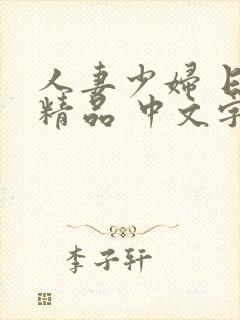 人妻少婦
精品 中文字
李子轩